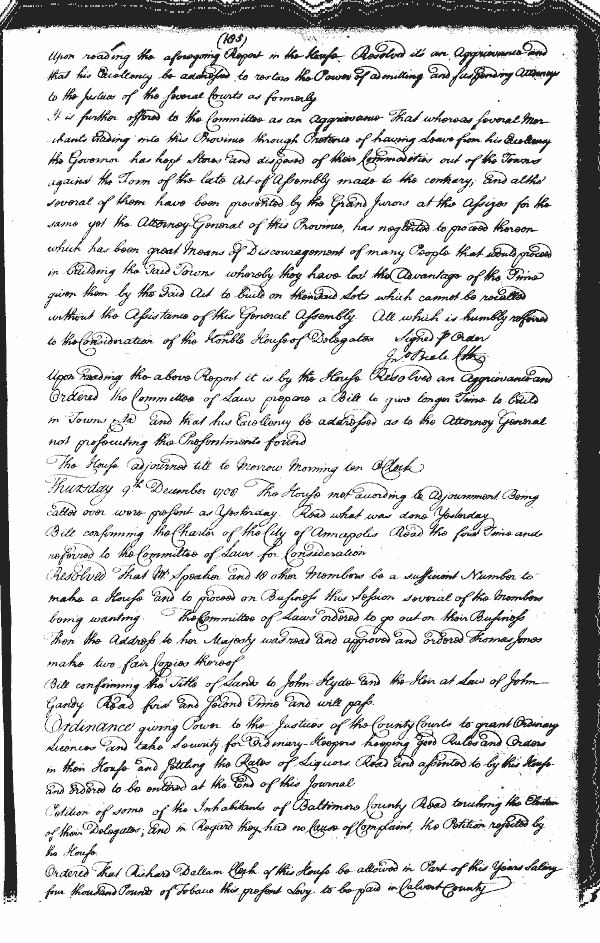 (185)
Upon reading the aforegoing Report in the House Resolved it's an Aggrievance and
that his Excellency be addressed to restore the Power of admitting and suspending Attorneys
to the Justices of the several Courts as formerly
It is further offered to the Committee as an Aggrievance That whereas several Mer
chants trading into this Province through Pretence of having Leave from his Excellency
the Governor has kept Stores and disposed of their Commodities out of the Towns
against the Form of the late Act of Assembly made to the contrary, and altho
several of them have been presented by the Grand Jurors at the Assizes for the
same yet the Attorney General of this Province, has neglected to proceed thereon
which has been great Means of Discouragement of many People that would proceed
in building the said Towns whereby they have lost the Advantage of the Time
given them by the said Act to build on their said Lots which cannot be recalled
without the Assistance of this General Assembly All which is humbly referred
to the Consideration of the Honble House of Delegates Signed P Order
Jno Beale
Upon reading the above Report it is by the House Resolved an Aggrievance and
Ordered the Committee of Laws prepare a Bill to give longer Time to build
in Towns and that his Excellency be addressed as to the Attorney General
not prosecuting the Presentments found
The House adjourned till to Morrow Morning ten oClock
Thursday 9th December 1708 The House met according to Adjournment Being
called over were present as Yesterday. Read what was done Yesterday
Bill confirming the Charter of the City of Annapolis Read the first Time and
referred to the Committee of Laws for Consideration
Resolved That Mr Speaker and 10 other Members be a sufficient Number to
make a House and to proceed on Business this Session several of the Members
being wanting. The Committee of Laws ordered to go out on their Business
Then the Address to her Majesty was read and approved and ordered Thomas Jones
make two fair Copies thereof
Bill confirming the Title of Lands to John Hyde and the Heir at Law of John
Gandy Read first and second Time and will pass.
Ordinance giving Power to the Justices of the County Courts to grant Ordinary
Licences and take Security for Ordinary-Keepers keeping good Rules and Orders
in their House and settling the Rates of Liquors Read and assented to by this House
and ordered to be entered at the End of this Journal
Petition of some of the Inhabitants of Baltimore County Read touching the Election
of their Delegates; and in Regard they had no Cause of Complaint, the Petition rejected by
the House
Ordered That Richard Dallam Clerk of this House be allowed in Part of this Years Salary
four thousand Pounds of Tobacco this present Levy to be paid in Calvert County